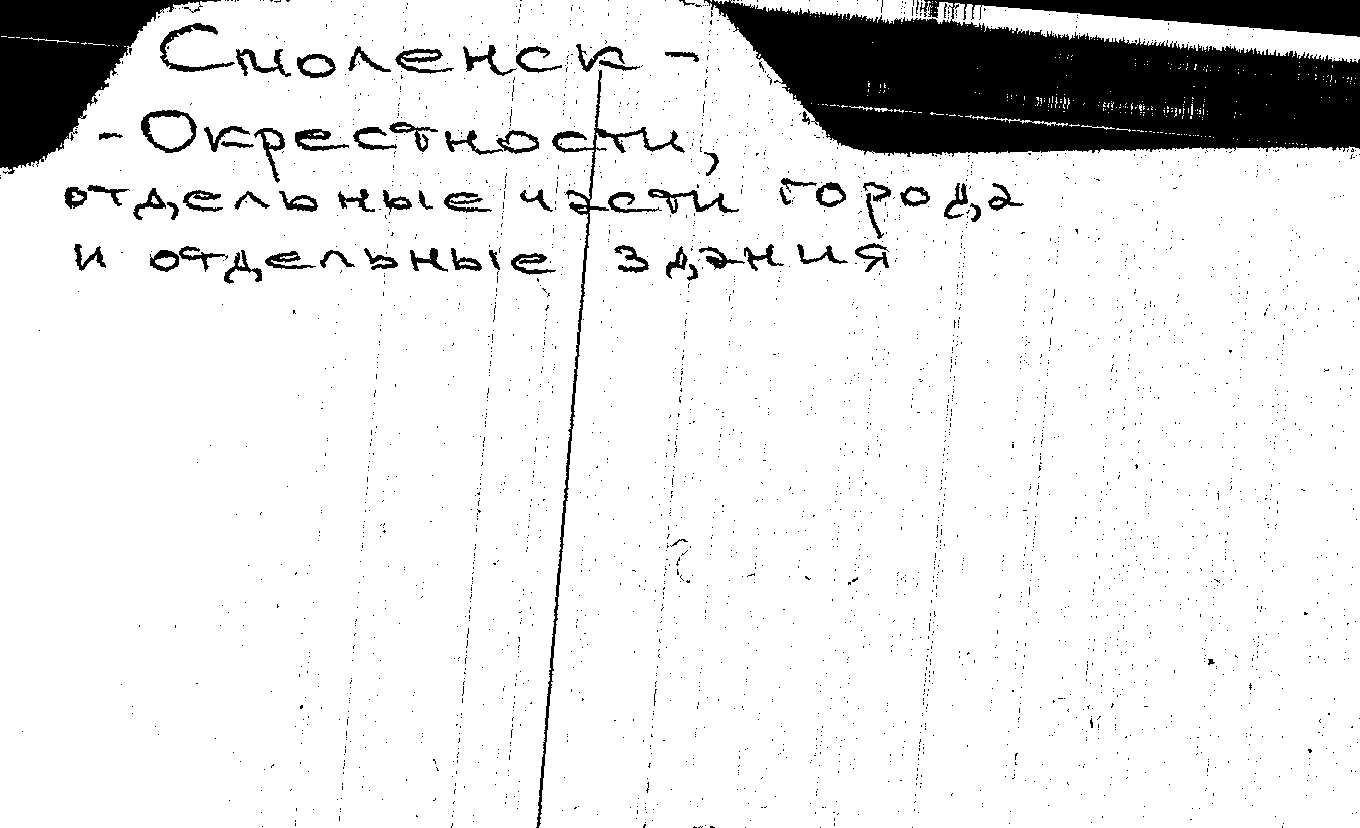 Смоленск -
- Окрестности,
отдельные части города
и отдельные здания